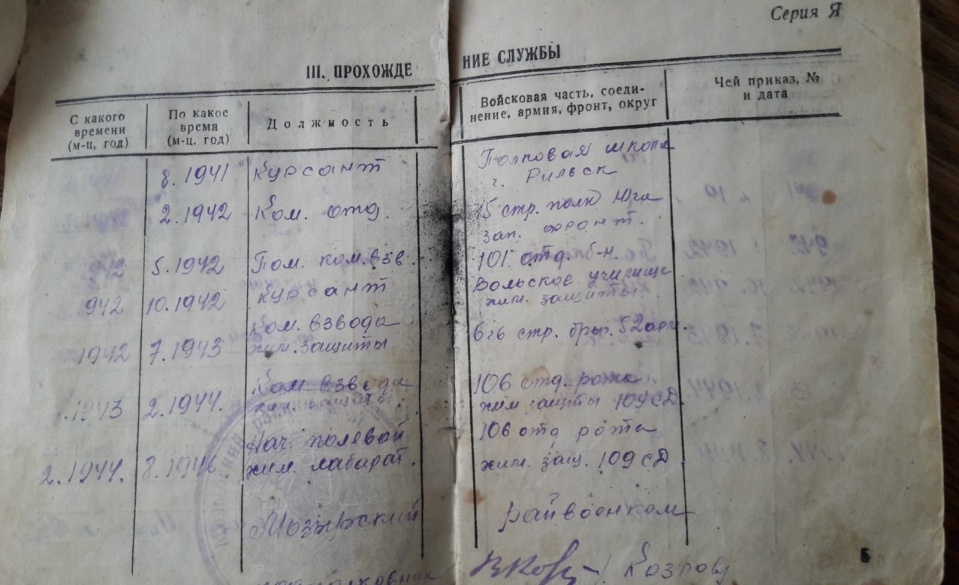 Серия Я
III. ПРОХОЖДЕНИЕ СЛУЖБЫ
С какого времени (м-ц, год)
По какое время (м-ц, год)
Должность
Войсковая часть, соеди-
нение, армия, фронт, округ
Чей приказ, №
и дата
8.1941 Курсант Полковая школа
г. Рильск
2.1942 Ком. отд. 15 стр. полк Юго
зап. фронт.
942 5.1942 Пом. ком. взв. 101 отд. б-н.
942 10.1942 Курсант Вольское училище
хим. защиты
1942 7.1943 Ком. взвода
хим. защиты
стр. бриг. 52 арм.
.1943 2.1944. Ком. взвода
хим. защиты
106 отд. рота
хим защиты 109 СД.
2.1944. 8.1946 Нач. полевой
хим. лабарат.
106 отд рота
хим. защ. 109 СД
Мозырский райвоенком
Козлов
5